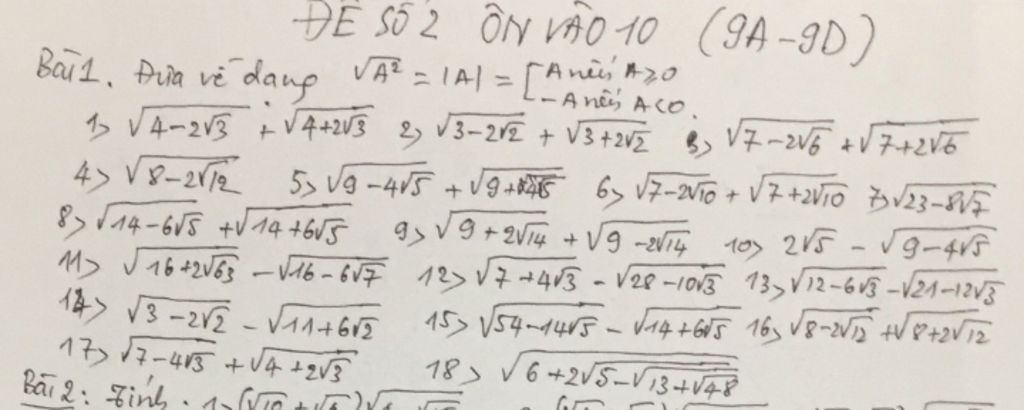 ĐỀ SỐ 2 ÔN VÀO 10 (9A-9D)
Bài 1. Đưa về dạng √A² = |A| = [A nếu A≥0
-A nếu A<0.
1> √(4-2√3) + √(4+2√3) 2> √(3-2√2) + √(3+2√2) 3> √(7-2√6) + √(7+2√6)
4> √(8-2√12) 5> √(9-4√5) + √(9+4√5) 6> √(7-2√10) + √(7+2√10) 7> √(23-8√7)
8> √(14-6√5) + √(14+6√5) 9> √(9+2√14) + √(9-2√14) 10> 2√5 - √(9-4√5)
11> √(16+2√63) - √(16-6√7) 12> √(7+4√3) - √(28-10√3) 13> √(12-6√3) - √(21-12√3)
14> √(3-2√2) - √(11+6√2) 15> √(54-14√5) - √(14+6√5) 16> √(8-2√12) + √(8+2√12)
17> √(7-4√3) + √(4+2√3) 18> √(6+2√(5-√(13+√48)))
Bài 2: Tính. 1>